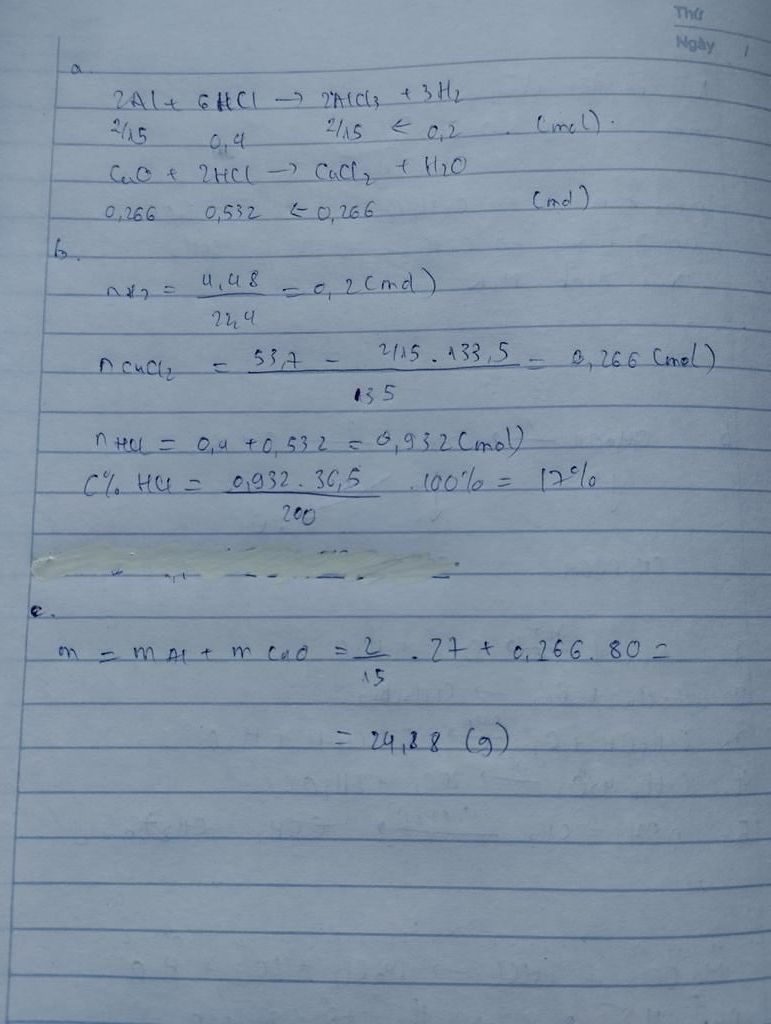 Thứ
Ngày
a.
2Al + 6HCl → 2AlCl3 + 3H2
2/15 0,4 2/15 ← 0,2 (mol).
CuO + 2HCl → CuCl2 + H2O
0,266 0,532 ← 0,266 (mol)
b.
nH2 = 4,48/22,4 = 0,2 (mol)
nCuCl2 = (53,7 - 2/15 . 133,5)/135 = 0,266 (mol)
nHCl = 0,4 + 0,532 = 0,932 (mol)
C% HCl = (0,932 . 36,5)/200 . 100% = 17%
c.
m = mAl + mCuO = 2/15 . 27 + 0,266 . 80 =
= 24,88 (g)